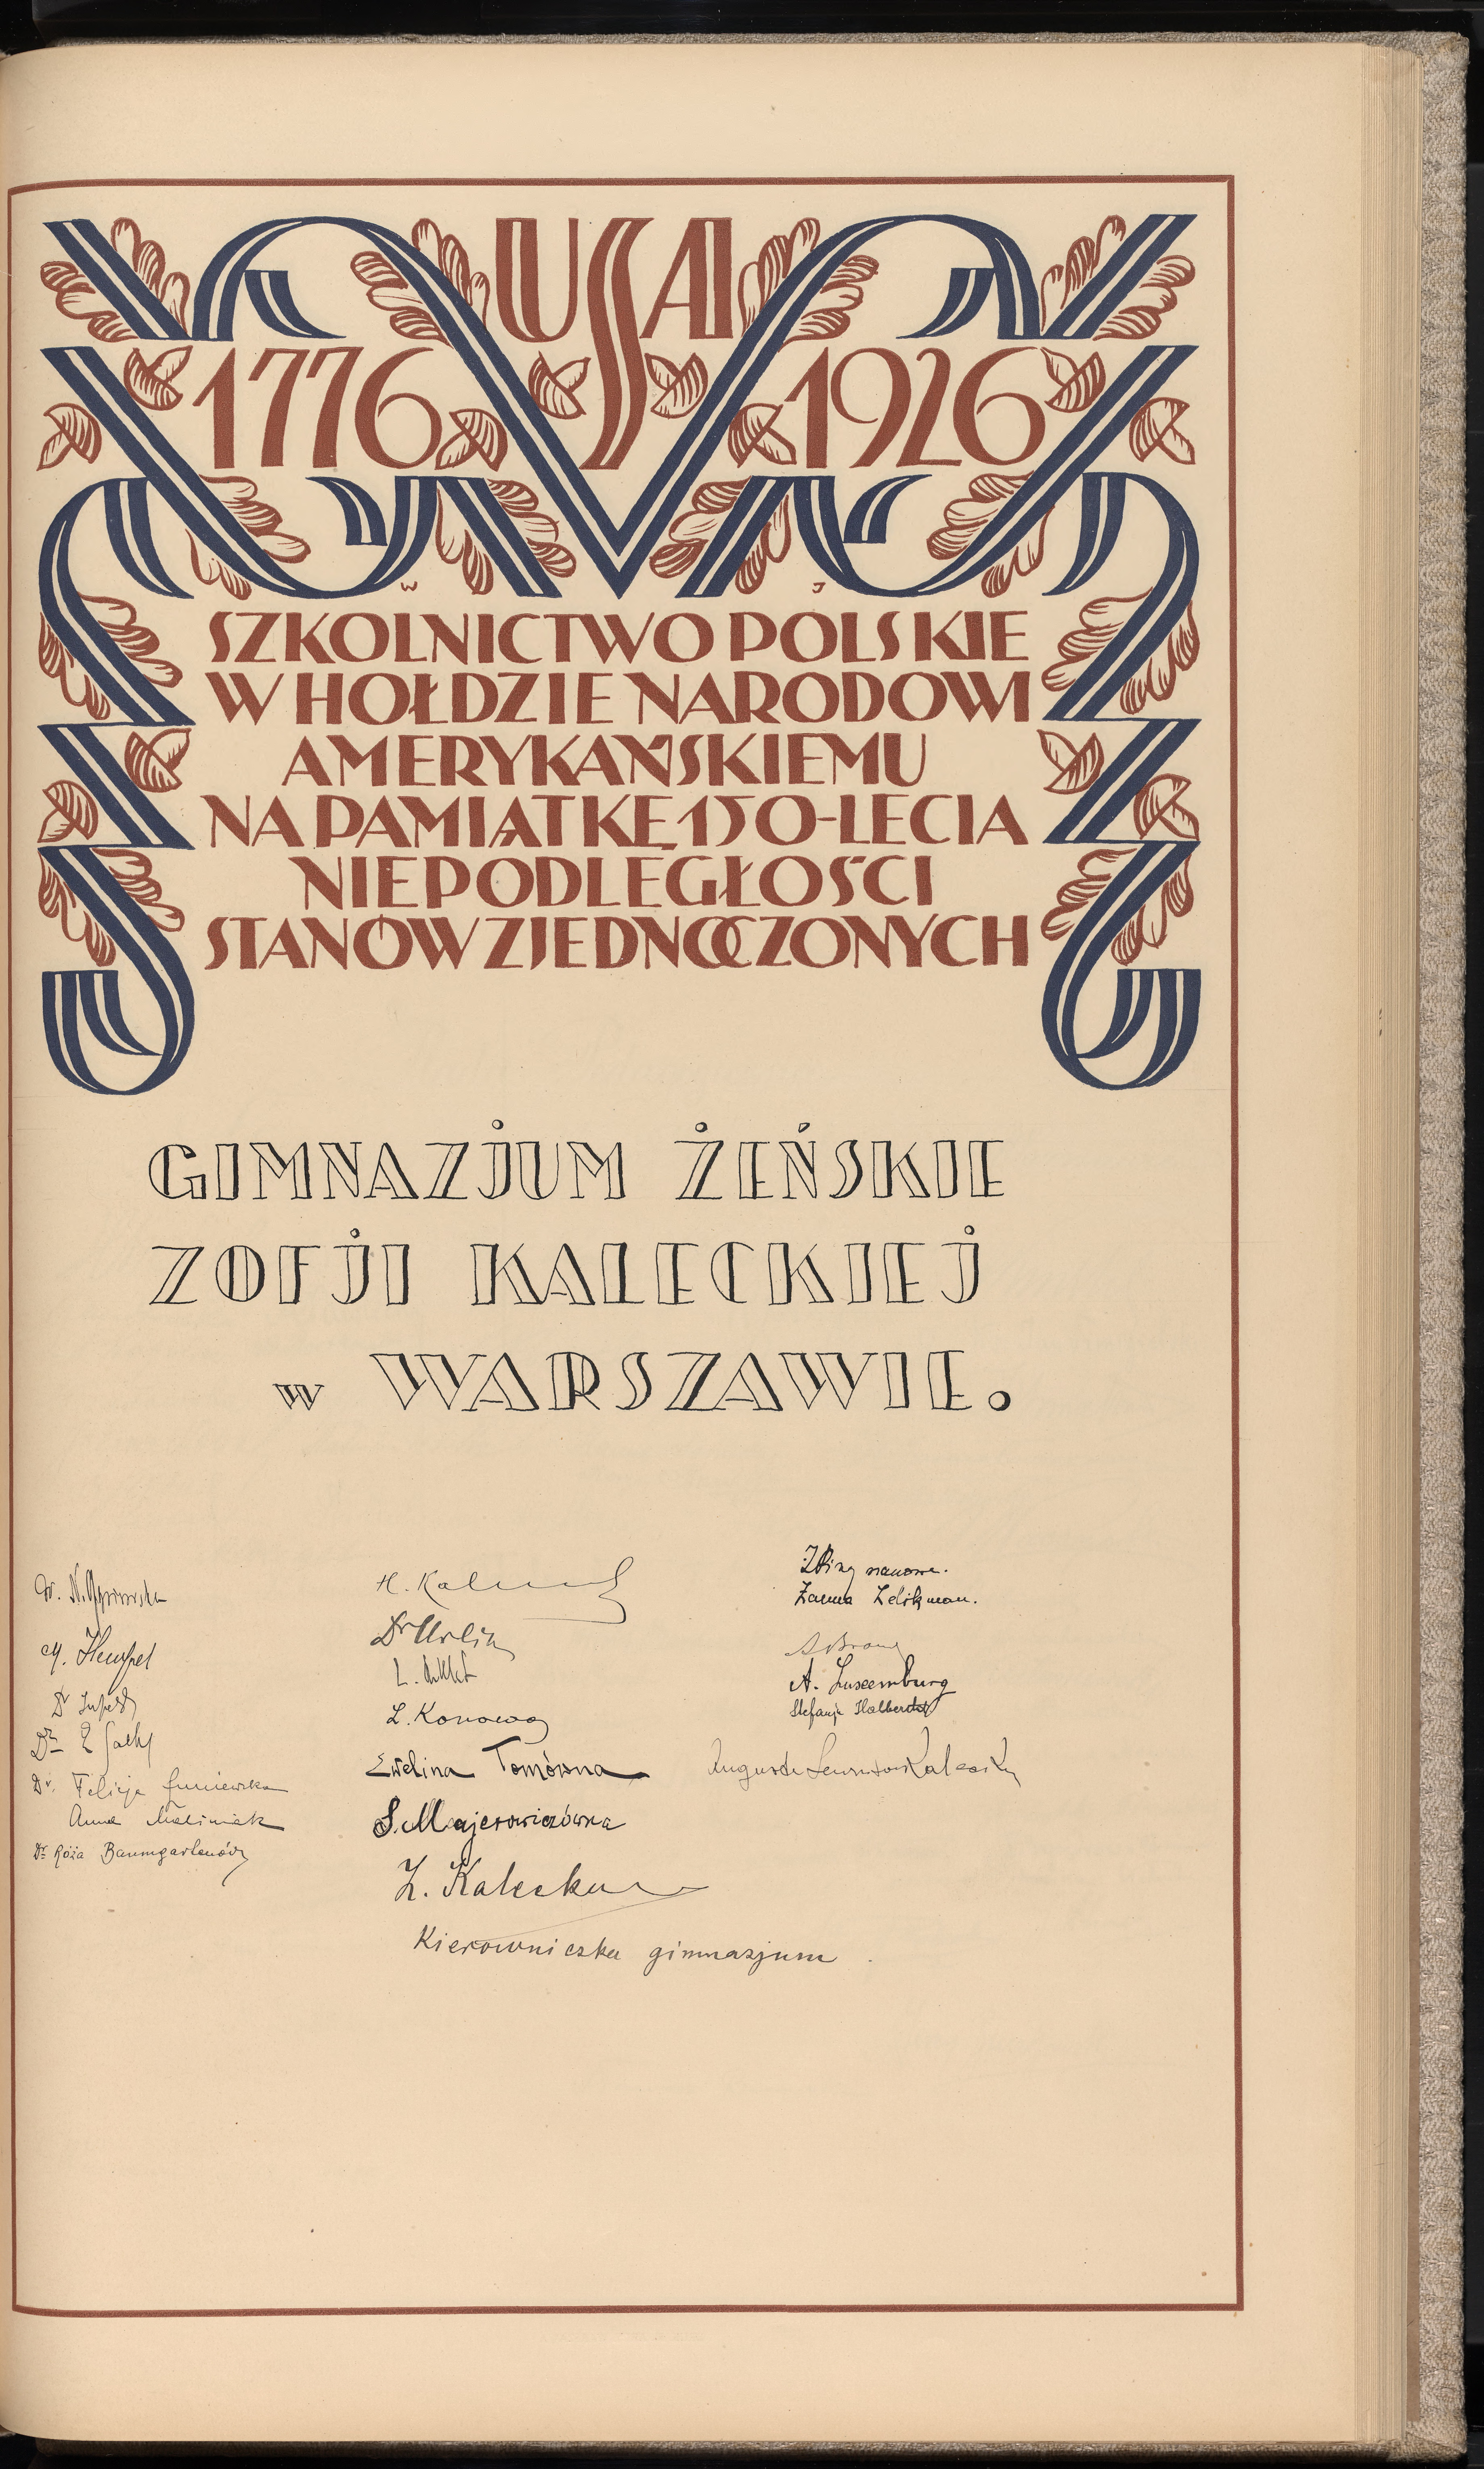 USA
1776 1926
W J
SZKOLNICTWO POLSKIE
W HOŁDZIE NARODOWI
AMERYKAŃSKIEMU
NA PAMIĄTKĘ 150-LECIA
NIEPODLEGŁOŚCI
STANÓW ZJEDNOCZONYCH
GIMNAZJUM ŻEŃSKIE
ZOFJI KALECKIEJ
w WARSZAWIE.
M. Hempel
Dr
Dr
Dr. Felicja
Anna Maliniak
Dr Róża Baumgartenówn
H.
Dr
L.
L.
Ewelina Tomówna
S. Majerowiczówna
Z. Kalecka
Kierowniczka gimnazjum
Żanna Zelikman.
A. Luxemburg
Stefanja
Augusta